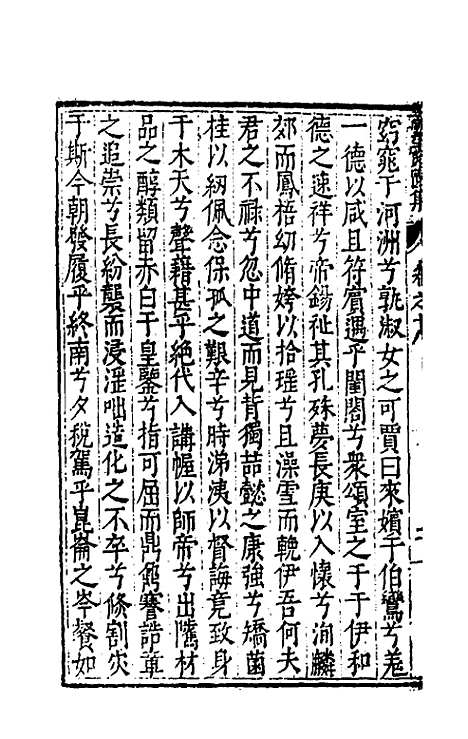 窈窕于河洲兮孰淑女之可賈曰來嬪于伯鸞兮羌
一德以咸且符賓遇乎閨閤兮衆頌室之于于伊和
德之速祥兮帝錫祉其孔殊夢長庚以入懷兮洵麟
郊而鳳梧幼脩姱以拾瑤兮且澡雪而輓伊吾何夫
君之不祿兮忽中道而見背獨喆懿之康強兮矯菌
桂以紉佩念保孤之艱辛兮時涕洟以督誨竟致身
于木天兮聲籍甚乎絶代入講幄以師帝兮出隲材
品之醇類留赤白于皇鑒兮指可屈而鼎鉉謇誥章
之追崇兮長紛襲而浸滛咄造化之不卒兮倐割灾
于斯今朝發履乎終南兮夕稅駕乎崑崙之岑餐如
卷之